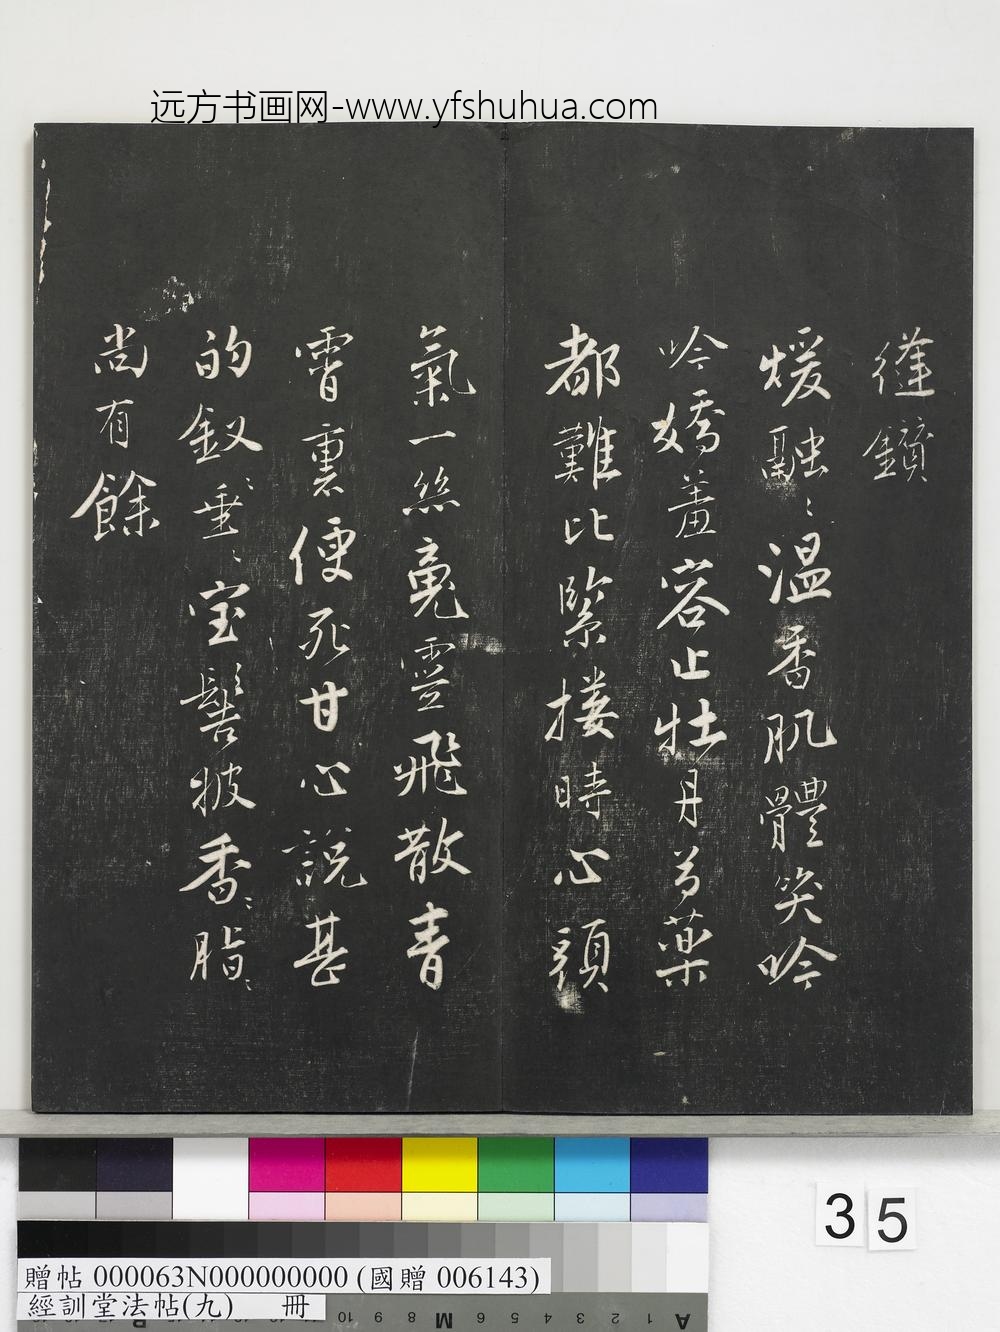 远方书画网-www.yfshuhua.com
縫鑚
煖融〻温香肌體笑吟
吟嬌羞容止牡丹芍藥
都難比緊摟時心頭
氣一絲魂靈飛散青
霄裏便死甘心說甚
的釵垂〻宝髻被香〻脂〻
尚有餘
35
贈帖 000063N000000000 (國贈 006143)
經訓堂法帖(九) 冊